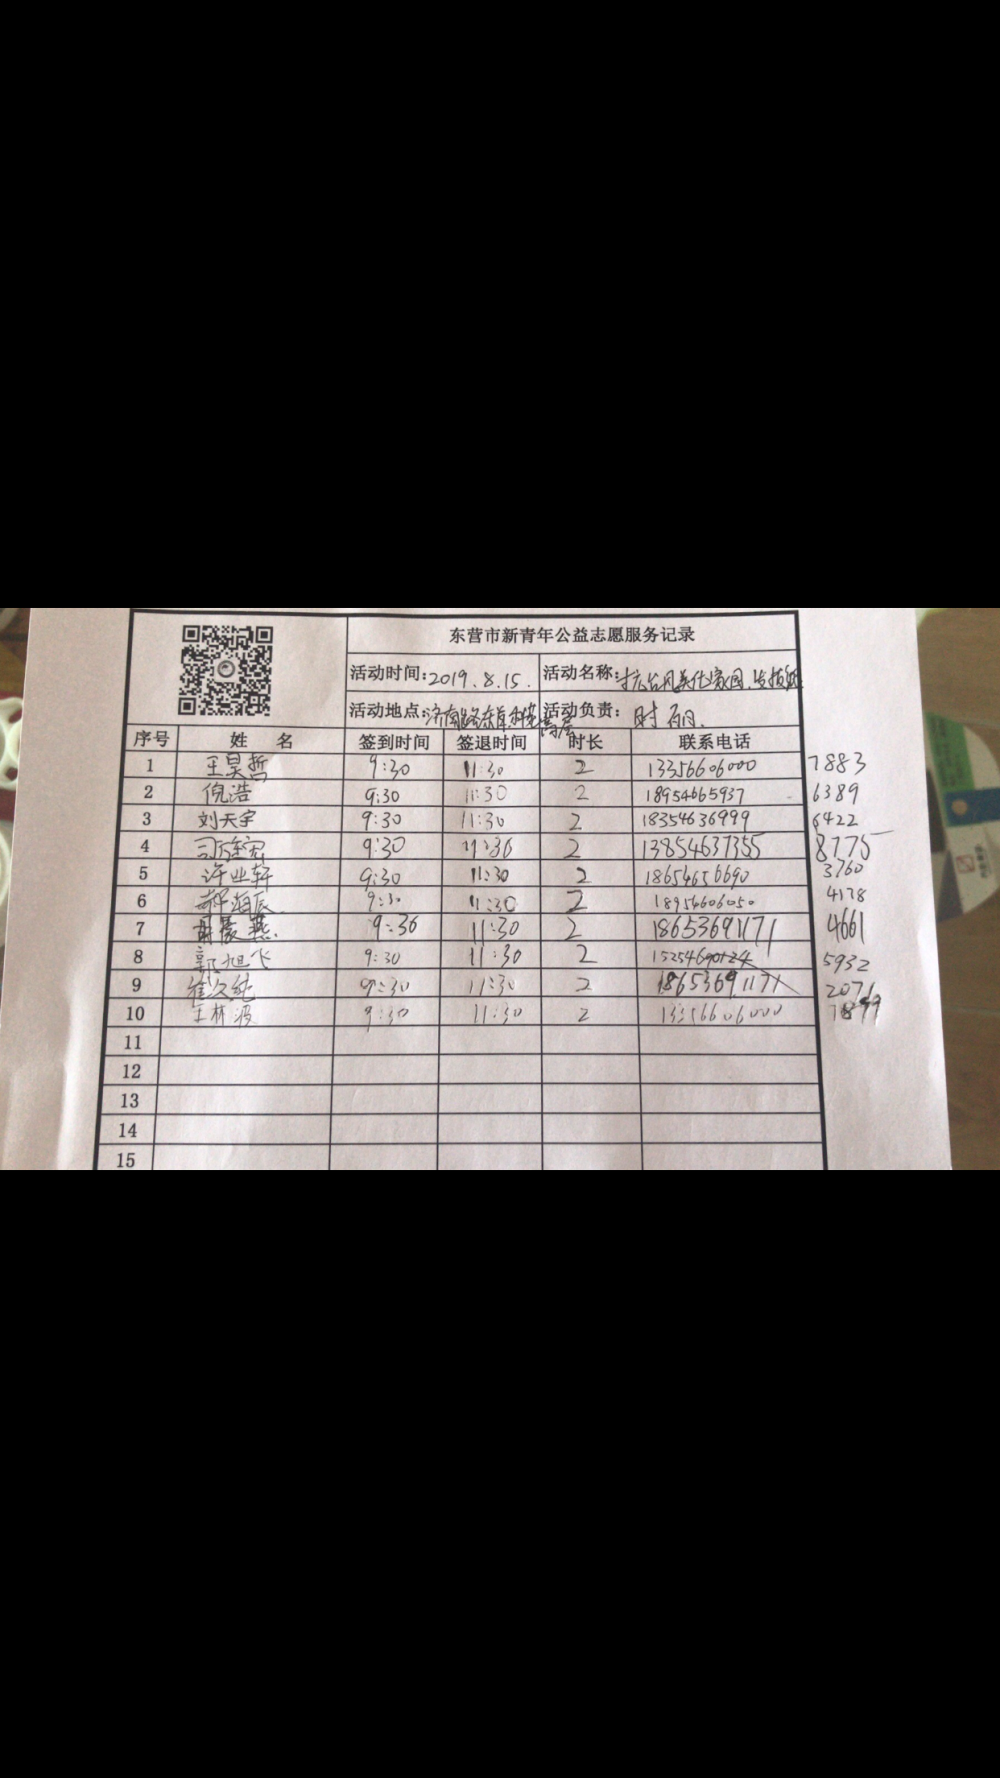 东营市新青年公益志愿服务记录
活动时间:2019.8.15. 活动名称:抗台风美化家园、
活动地点:济南路 活动负责: 时 丽.
序号 姓 名 签到时间 签退时间 时长 联系电话
1 王昊哲 9:30 11:30 2 13356606000 7883
2 倪浩 9:30 11:30 2 18954665937 6389
3 刘天宇 9:30 11:30 2 18354636999 6422
4 9:30 11:30 2 13854637355 8775
5 许业轩 9:30 11:30 2 18654656690 3760
6 9:30 11:30 2 18956606050 4178
7 9:30 11:30 2 18653691171 4661
8 郭旭飞 9:30 11:30 2 15254690124 5932
9 9:30 11:30 2 18653691171 2071
10 王林波 9:30 11:30 2 13356606000
11
12
13
14
15